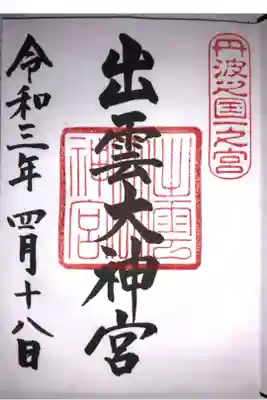 丹波之国一之宮
出雲大神宮
出雲
神宮
令和三年 四月十八日